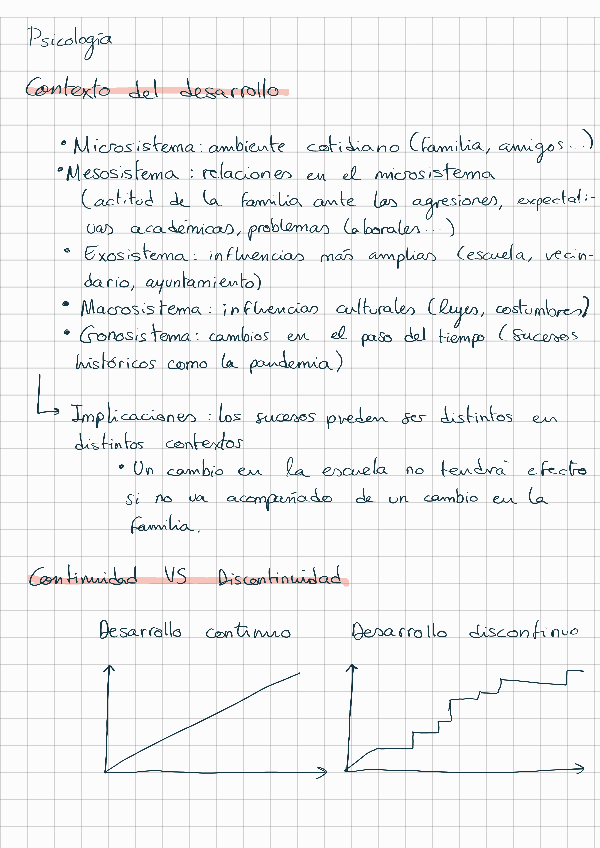 Psicología
Contexto del desarrollo
• Microsistema: ambiente cotidiano (familia, amigos...)
• Mesosistema: relaciones en el microsistema
(actitud de la familia ante las agresiones, expectati-
vas académicas, problemas laborales...)
• Exosistema: influencias más amplias (escuela, vecin-
dario, ayuntamiento)
• Macrosistema: influencias culturales (leyes, costumbres)
• Conosistema: cambios en el paso del tiempo (sucesos
históricos como la pandemia)
Implicaciones: los sucesos pueden ser distintos en
distintos contextos
• Un cambio en la escuela no tendrá efecto
si no va acompañado de un cambio en la
familia.
Continuidad VS Discontinuidad
Desarrollo continuo Desarrollo discontinuo